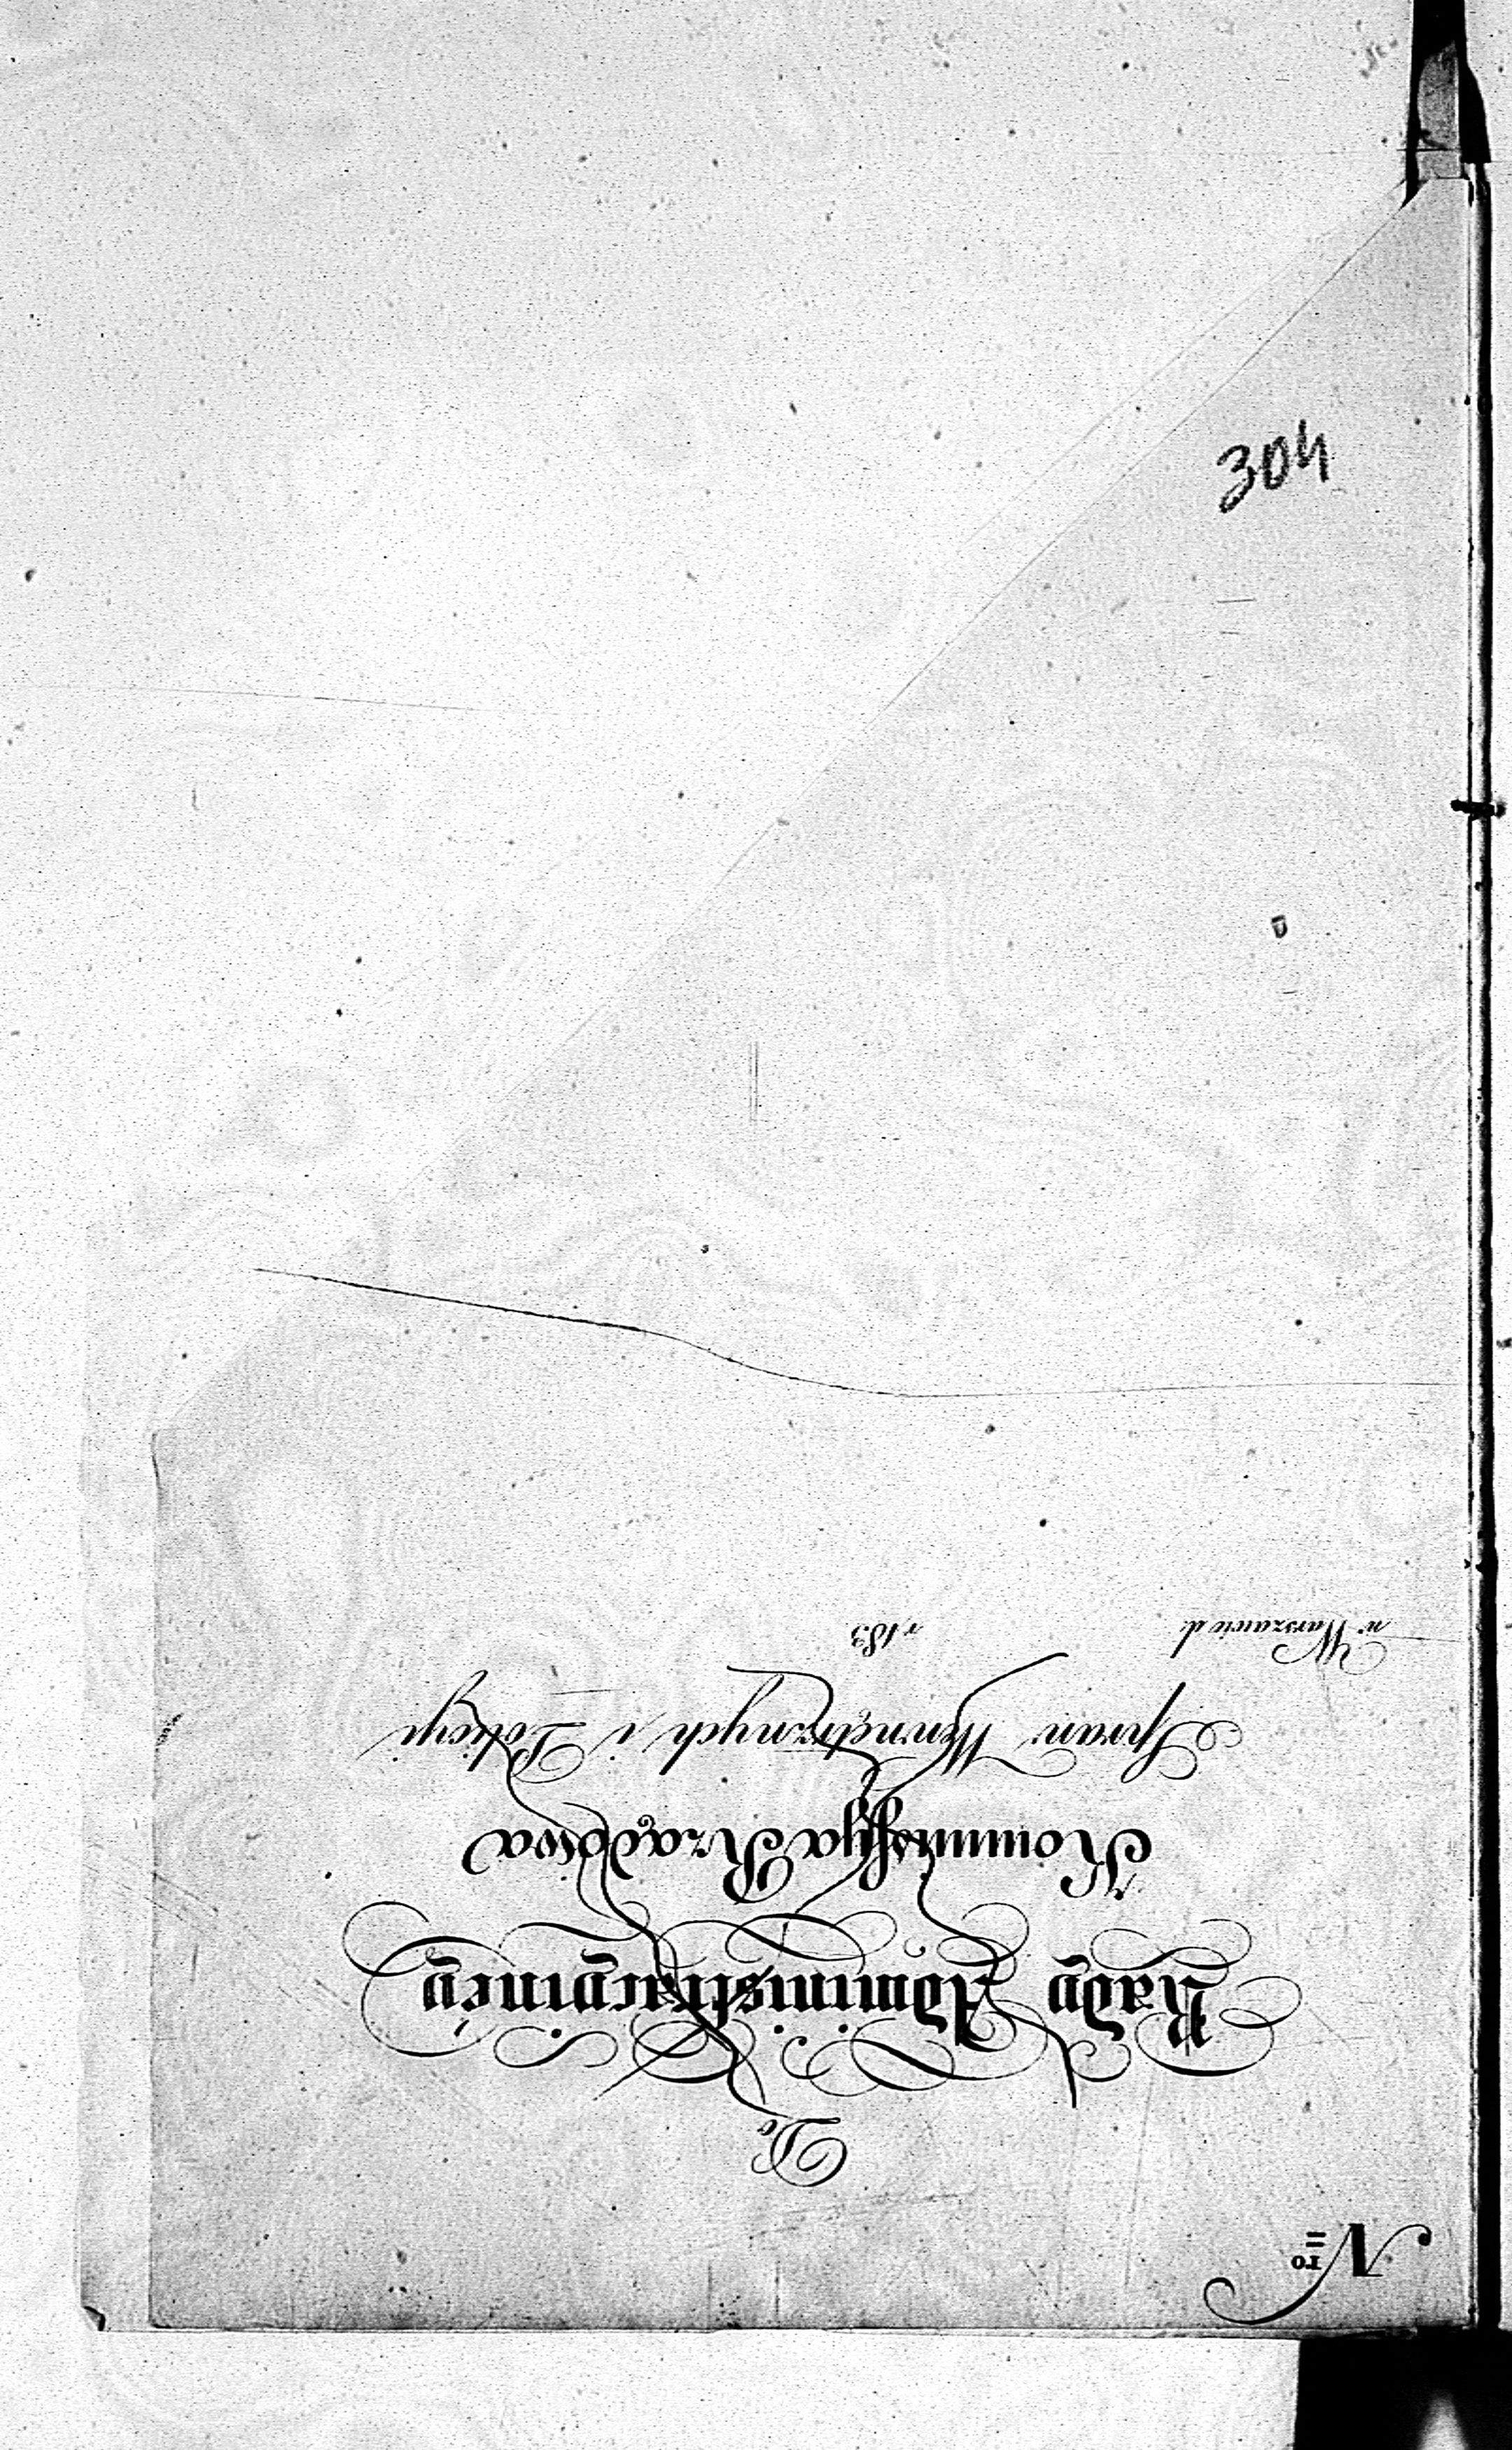 304
Nro
Do
Rady Administracyinéy
Kommissya Rządowa
Spraw Wewnętrznych i Policyi
w Warszawie d. r. 183